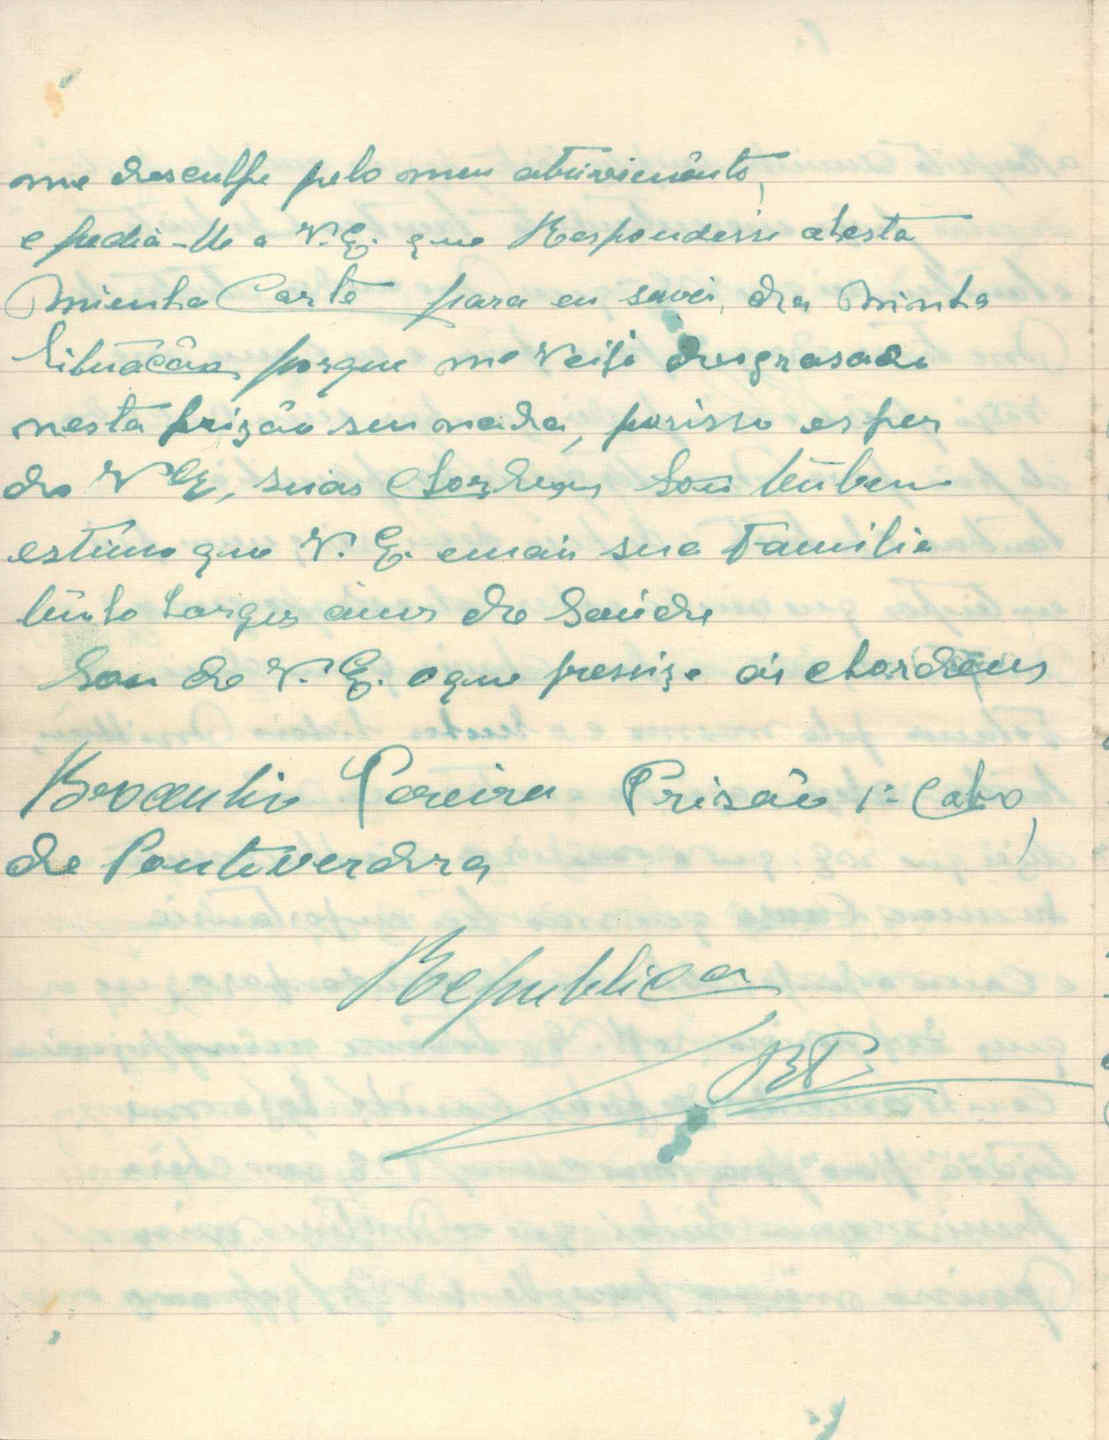 me desculpe pelo meu atrivimento,
e pedia-lhe a V.E. que Respondesse a esta
minha Carta para eu saver, da minha
situação, porque me veijo desgrasado
nesta prizão sem nada, porisso esper
do V.E, suas hordens Sou
estimo que V. E. e mais sua Familia
tinho largos anos de Saúde
Sou de V. E. o que presizo às hordens
Braulio Pereira Prisão 1º Cabo,
de Ponteverdra
Republica
BP